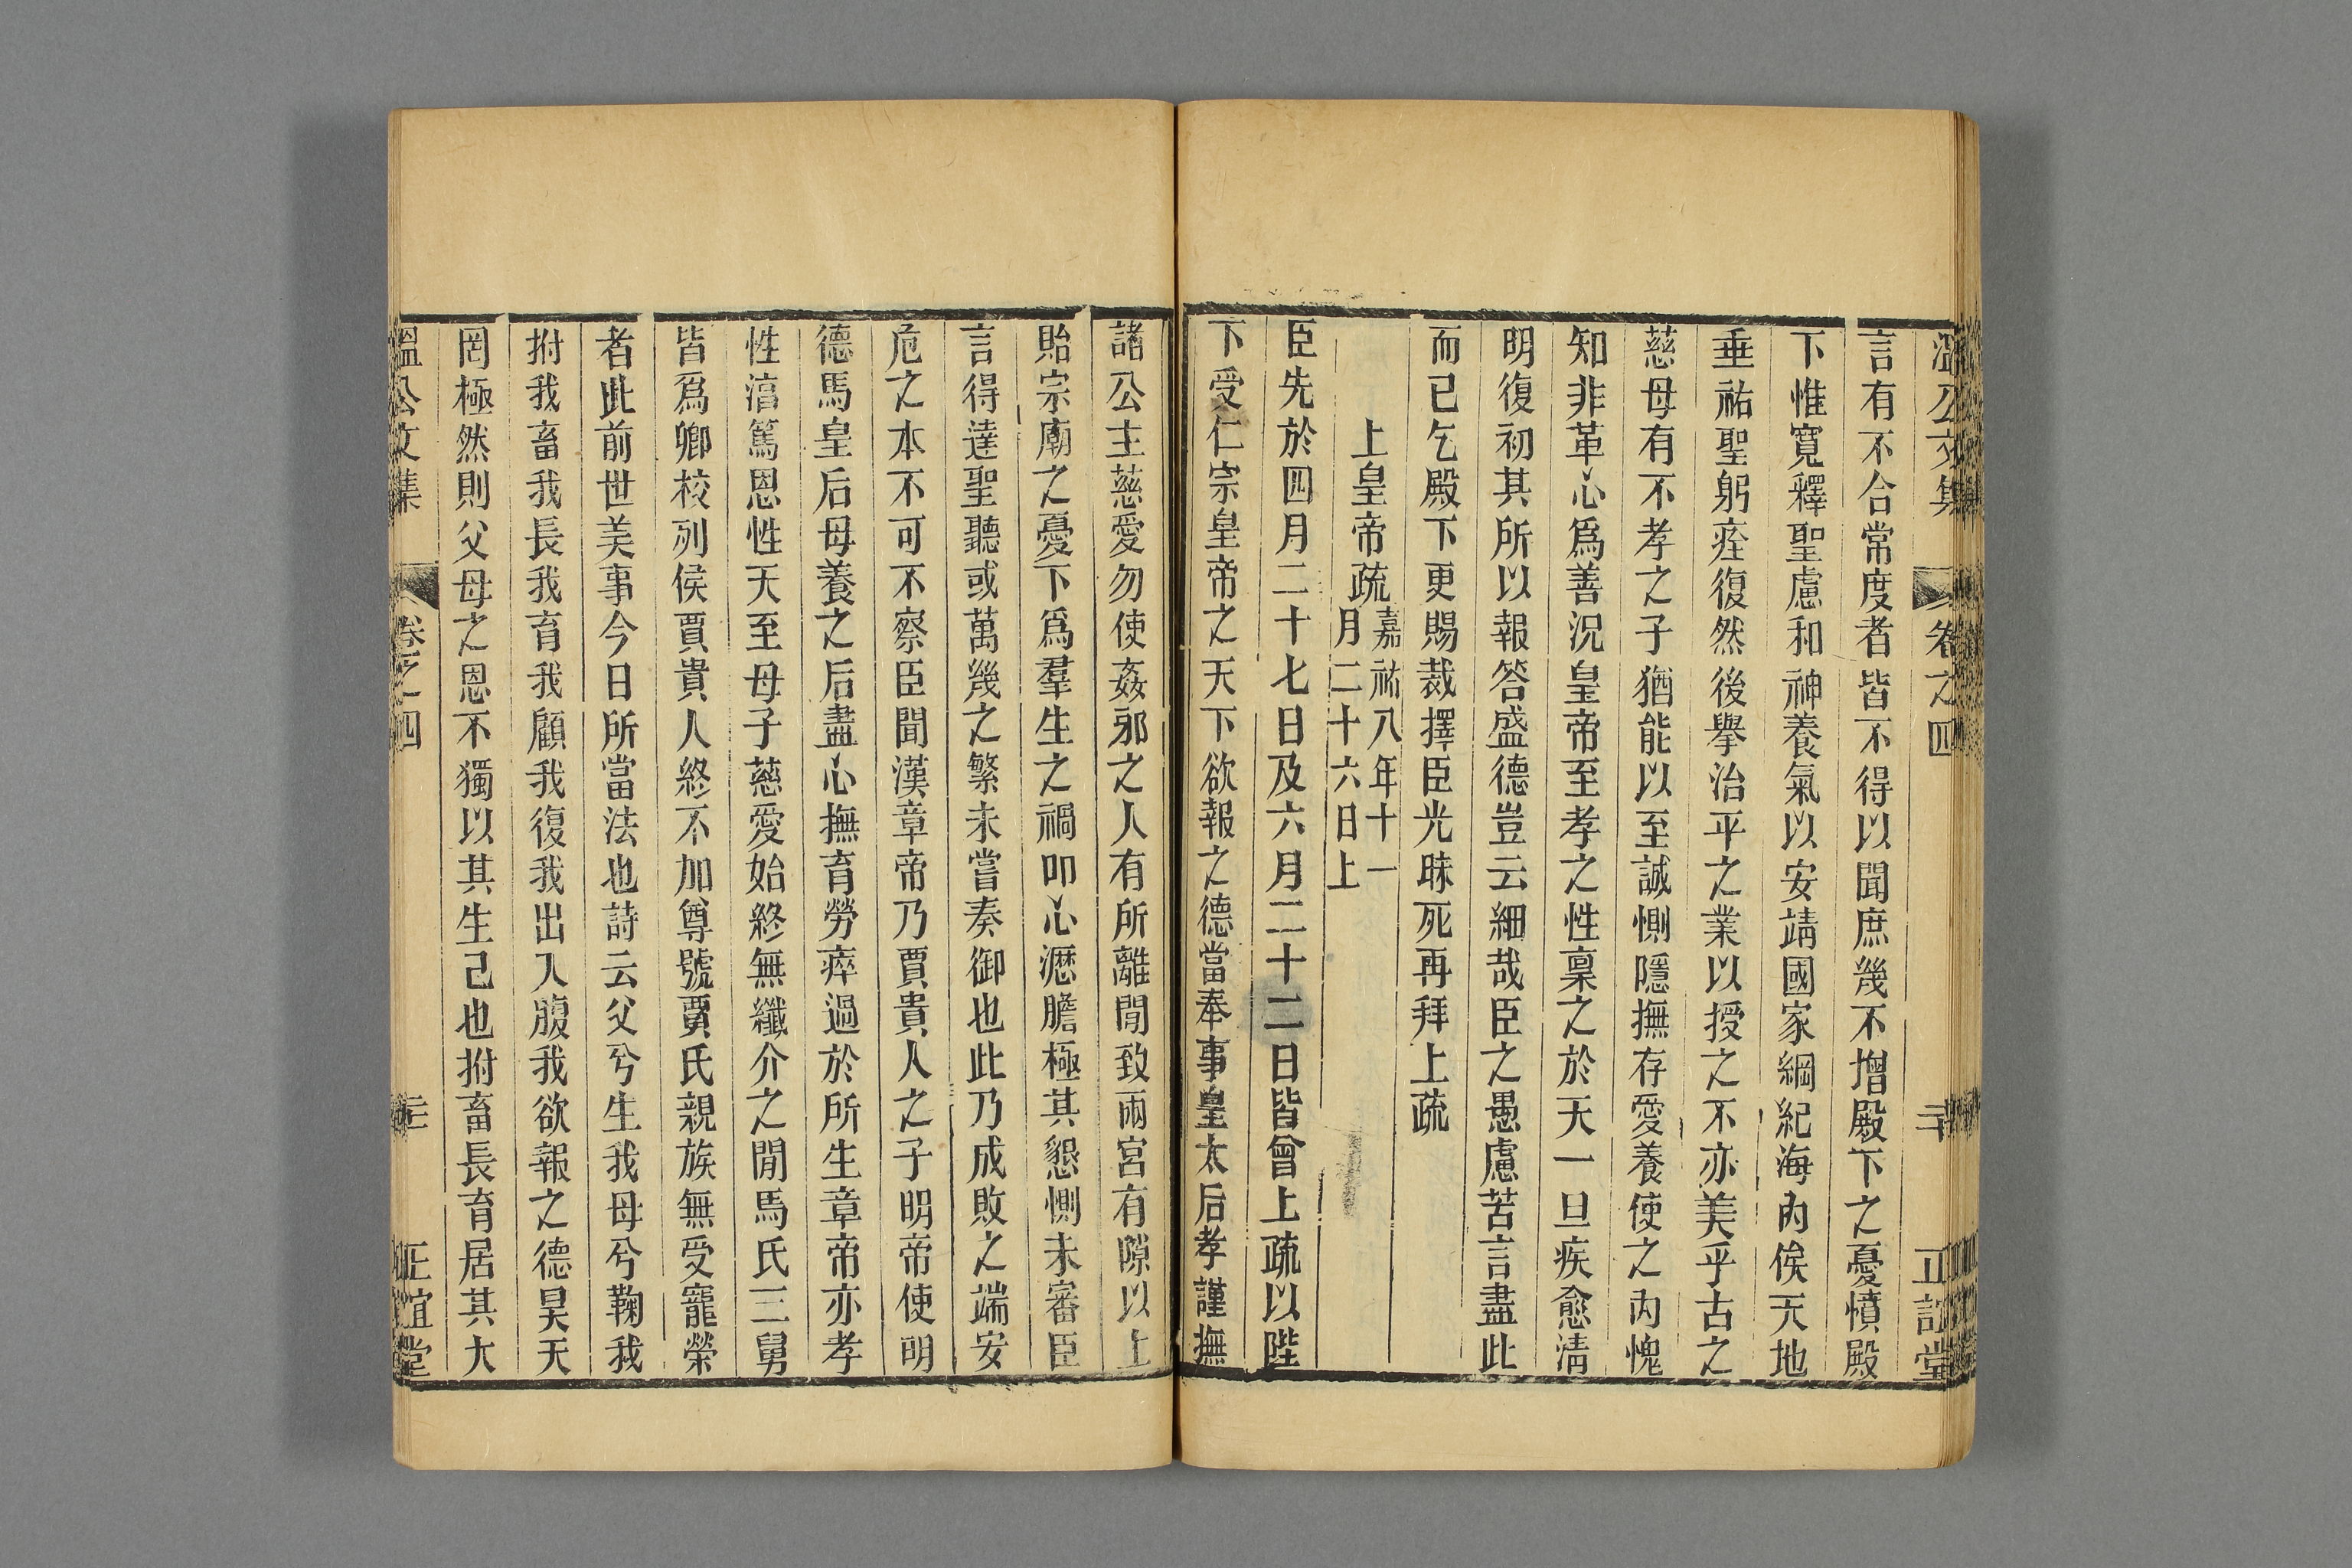 溫公文集 卷之四 二十 正誼堂
言有不合常度者皆不得以聞庶幾不增殿下之憂憤殿
下惟寬釋聖慮和神養氣以安靖國家綱紀海內俟天地
垂祐聖躬痊復然後舉治平之業以授之不亦美乎古之
慈母有不孝之子猶能以至誠惻隱撫存愛養使之內愧
知非革心爲善況皇帝至孝之性稟之於天一旦疾愈清
明復初其所以報答盛德豈云細哉臣之愚慮苦言盡此
而已乞殿下更賜裁擇臣光昧死再拜上疏
上皇帝疏嘉祐八年十一
月二十六日上
臣先於四月二十七日及六月二十二日皆曾上疏以陛
下受仁宗皇帝之天下欲報之德當奉事皇太后孝謹撫
諸公主慈愛勿使姦邪之人有所離間致兩宮有隙以上
貽宗廟之憂下爲羣生之禍叩心瀝膽極其懇惻未審臣
言得達聖聽或萬幾之繁未嘗奏御也此乃成敗之端安
危之本不可不察臣聞漢章帝乃賈貴人之子明帝使明
德馬皇后母養之后盡心撫育勞瘁過於所生章帝亦孝
性淳篤恩性天至母子慈愛始終無纖介之閒馬氏三舅
皆爲卿校列侯賈貴人終不加尊號賈氏親族無受寵榮
者此前世美事今日所當法也詩云父兮生我母兮鞠我
拊我畜我長我育我顧我復我出入腹我欲報之德昊天
罔極然則父母之恩不獨以其生己也拊畜長育居其大
溫公文集 卷之四 正誼堂